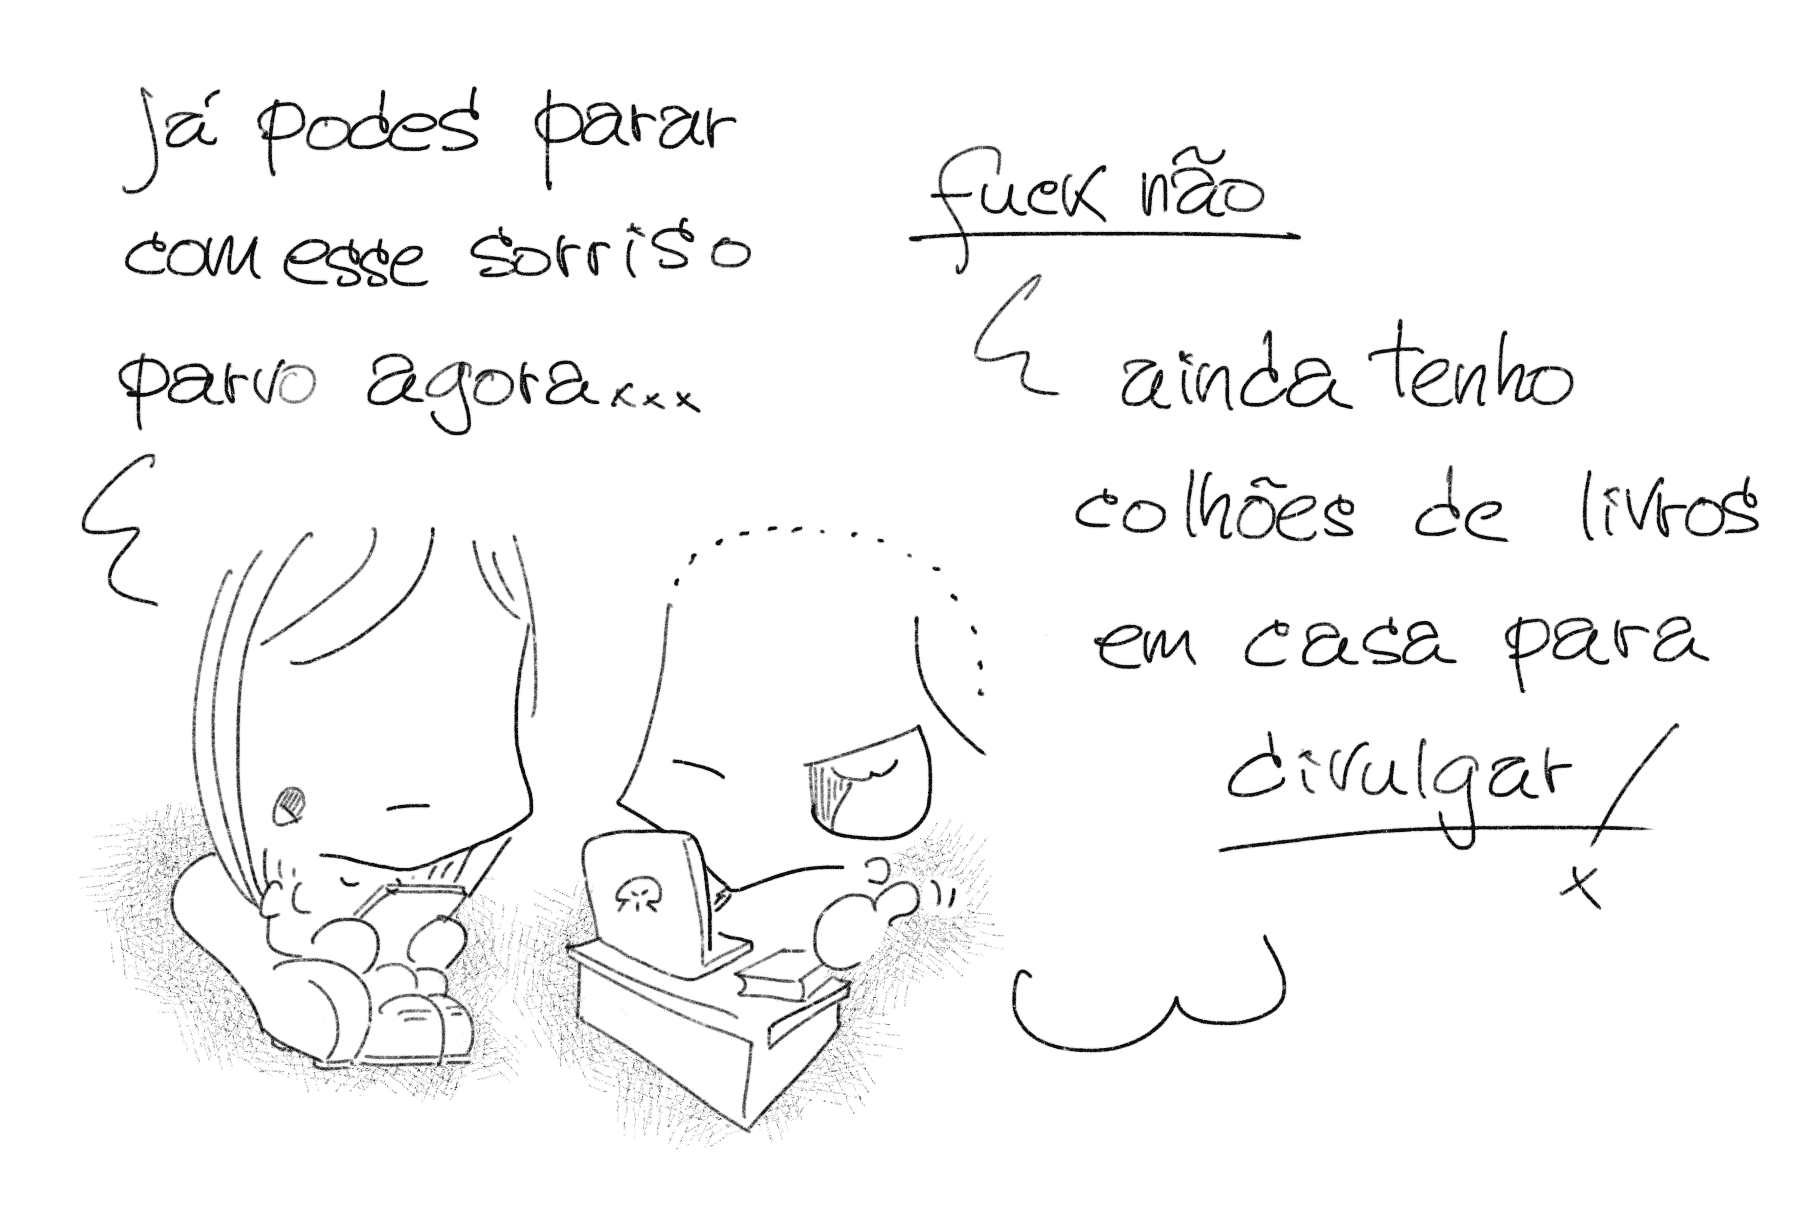 já podes parar
com esse sorriso
parvo agora...
fuck não
ainda tenho
colhões de livros
em casa para
divulgar!